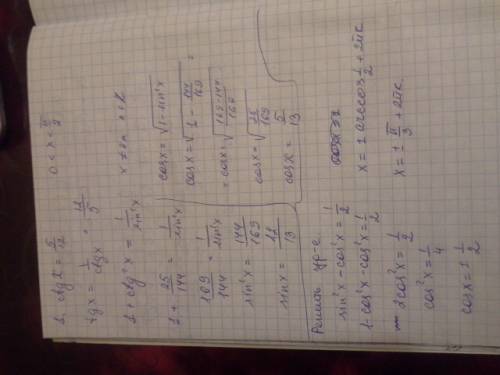 1. ctg x = 5/12    0 < x < π/2
tg x = 1/ctg x = 12/5    x ≠ πn n∈Z
1 + ctg²x = 1/sin²x
1 + 25/144 = 1/sin²x
169/144 = 1/sin²x
sin²x = 144/169
sin x = 12/13
cos x = √(1 - sin²x)
cos x = √(1 - 144/169) =
= cos x = √((169-144)/169)
cos x = √(25/169)
cos x = 5/13
Решить ур-е.
sin²x - cos²x = 1/2
1 - cos²x - cos²x = 1/2
2cos²x = 1/2
cos²x = 1/4
cos x = ± 1/2
x = ± arccos 1/2 + 2πk
x = ± π/3 + 2πk.